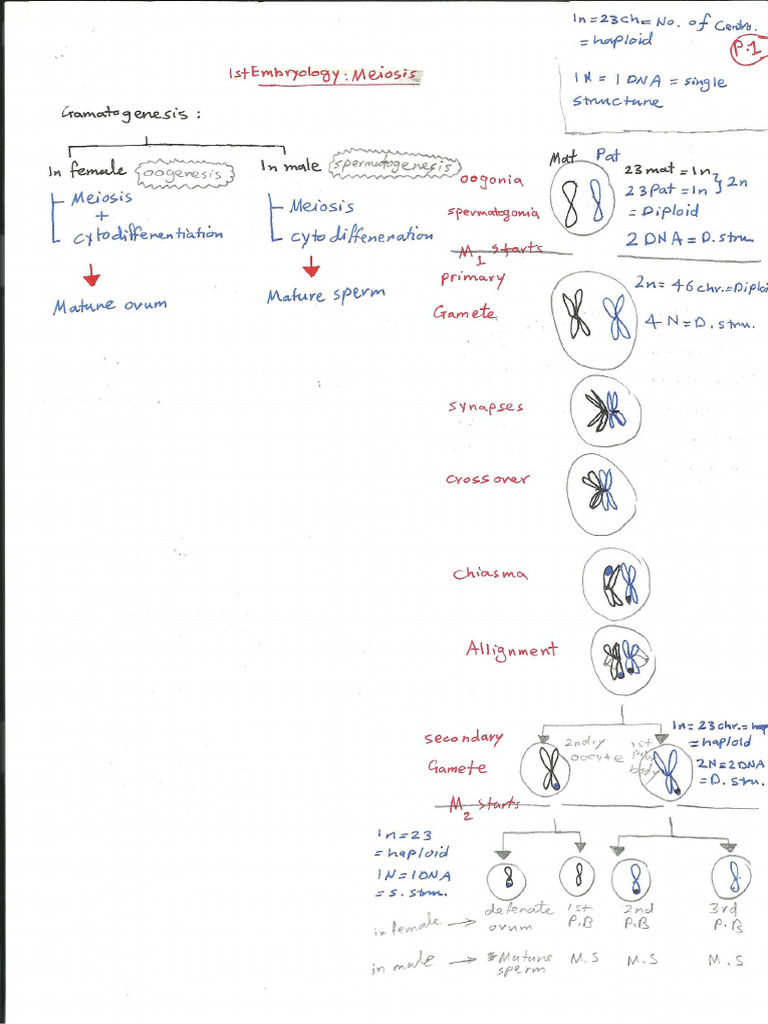 1n=23ch=No. of Centro.
=haploid
P.1
1N = 1DNA = single
structure
1st Embryology: Meiosis
Gamatogenesis:
In female oogenesis
Meiosis
+
cytodifferentiation
Mature ovum
In male spermatogenesis
Meiosis
cytodifferenation
Mature sperm
oogonia
spermatogonia
Mat Pat
23mat = 1n
23Pat = 1n } 2n
= Diploid
2 DNA = D.stru.
M1 starts
primary
Gamete
2n= 46 chr.=Diploi
4 N = D. stru.
synapses
crossover
chiasma
Allignment
secondary
Gamete
2ndry
oocyte
1st
polar
body
1n= 23chr.= hap
= haploid
2N=2DNA
= D. stru.
M2 starts
1n=23
=haploid
1N = 1DNA
= s. stru.
in female
defenate
ovum
1st
P.B
2nd
P.B
3rd
P.B
in male
Mature
sperm
M.S
M.S
M.S